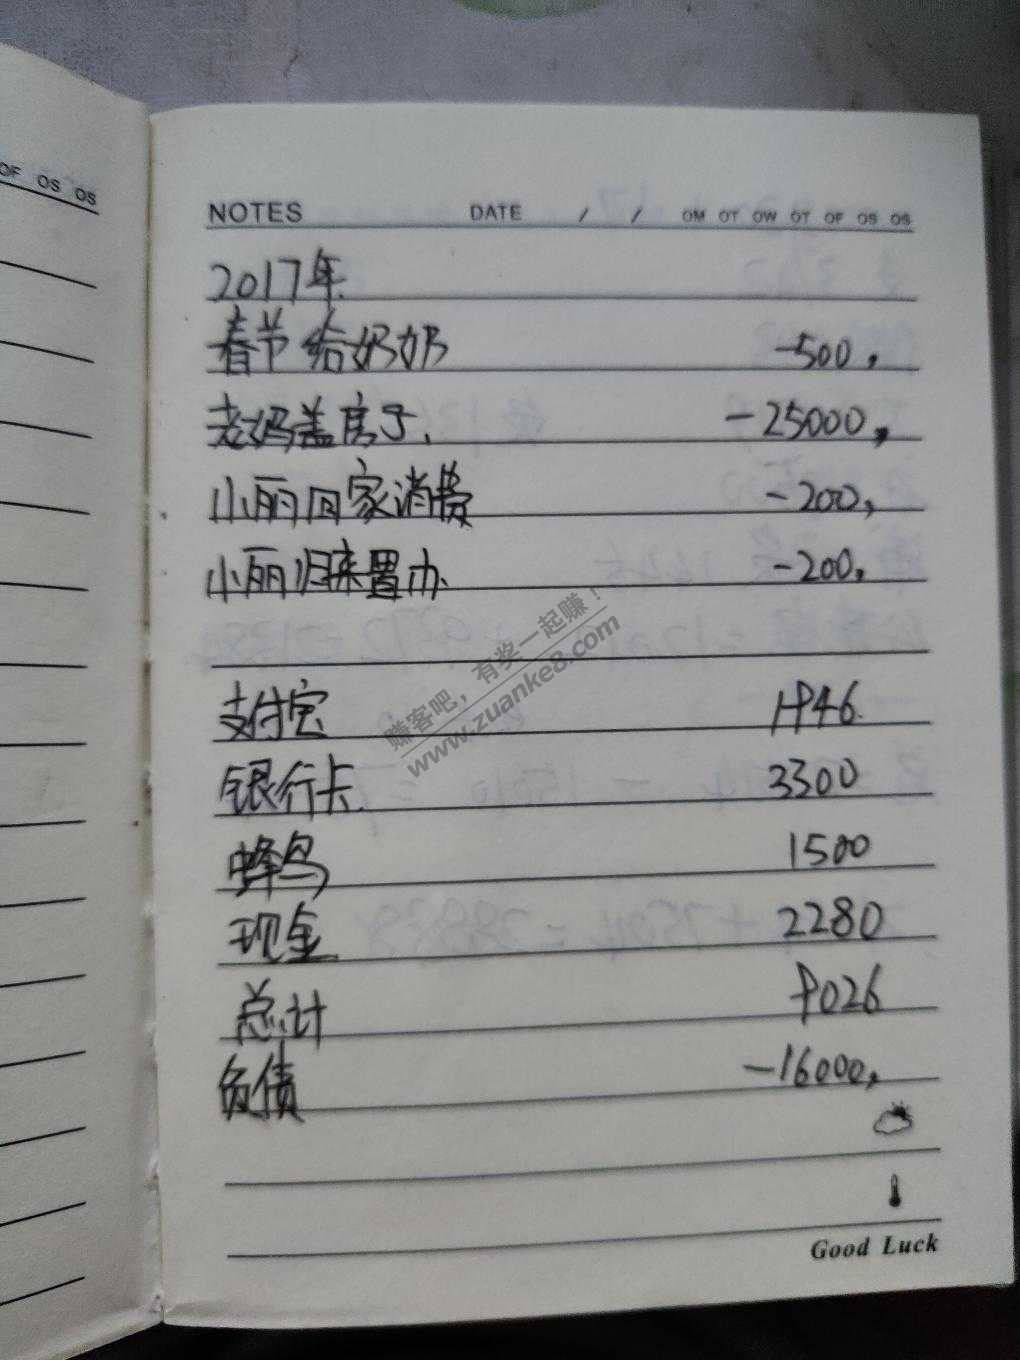 OF OS OS
NOTES DATE / / OM OT OW OT OF OS OS
2017年
春节给奶奶 -500,
老妈盖房子. -25000,
小丽回家消费 -200,
小丽归来置办. -200,
赚客吧，有奖一起赚！
www.zuanke8.com
支付宝 1946.
银行卡. 3300
蜂鸟 1500
现金 2280
总计 9026
负债 -16000,
Good Luck